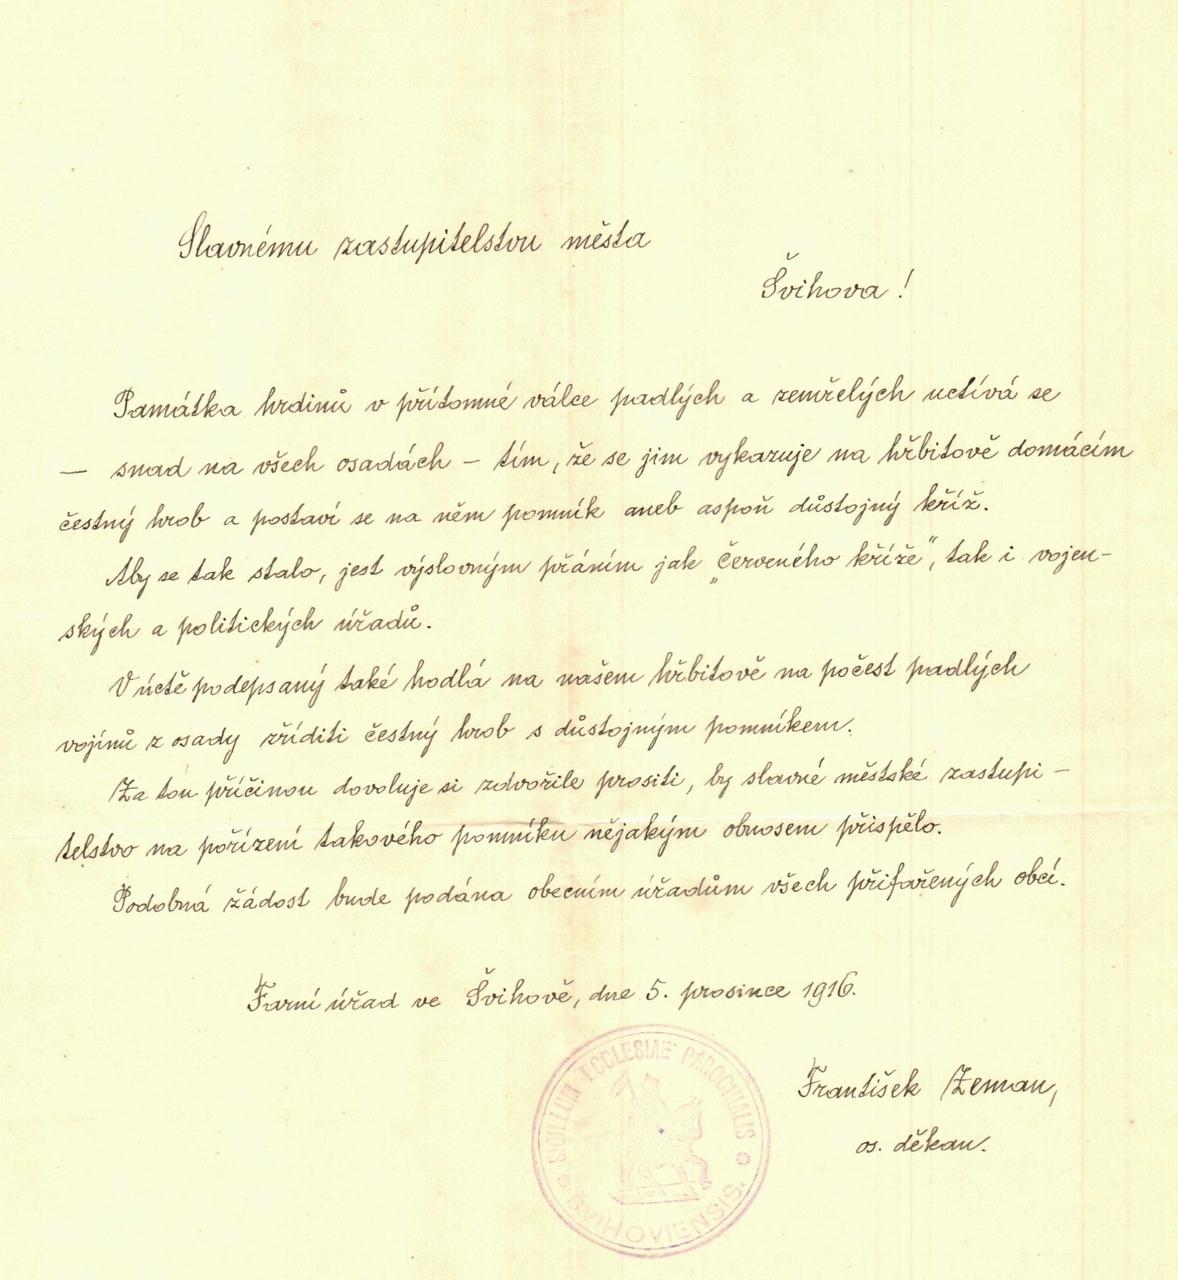 Slavnému zastupitelstvu města
Švihova!
Památka hrdinů v přítomné válce padlých a zemřelých uctívá se
— snad na všech osadách – tím, že se jim vykazuje na hřbitově domácím
čestný hrob a postaví se na něm pomník aneb aspoň důstojný kříž.
Aby se tak stalo, jest výslovným přáním jak „Červeného kříže", tak i vojen-
ských a politických úřadů.
V úctě podepsaný také hodlá na našem hřbitově na počest padlých
vojínů z osady zříditi čestný hrob s důstojným pomníkem.
Za tou příčinou dovoluje si zdvořile prositi, by slavné městské zastupi-
telstvo na pořízení takového pomníku nějakým obnosem přispělo.
Podobná žádost bude podána obecním úřadům všech přifařených obcí.
Farní úřad ve Švihově, dne 5. prosince 1916.
SIGILLUM ECCLESIAE PAROCHIALIS
ŠVIHOVIENSIS.
František Zeman,
os. děkan.